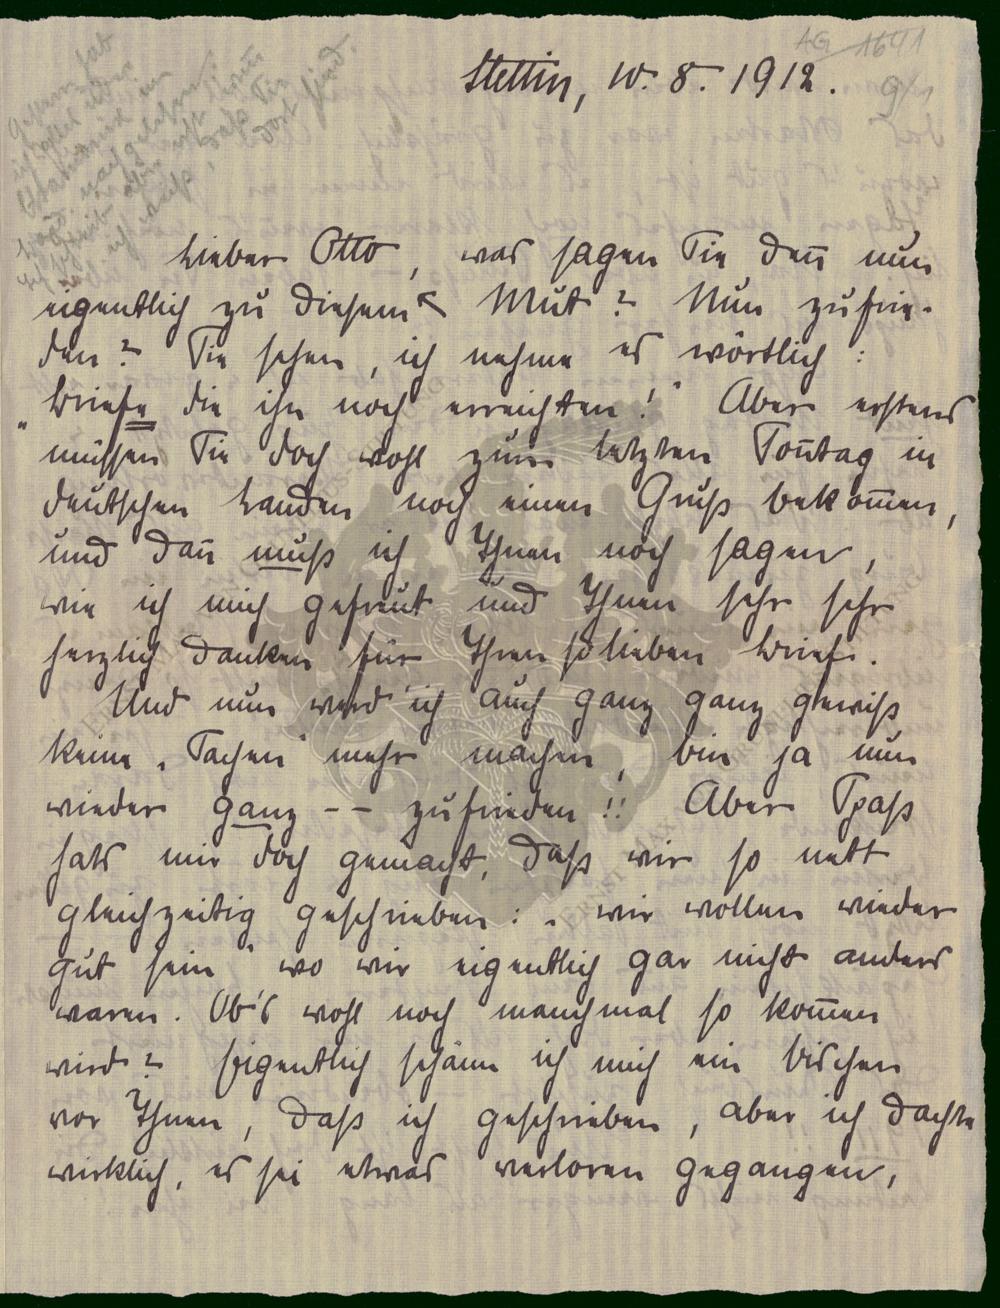 AG 1641
9/1
Stettin, 10. 8. 1912.
Lieber Otto, was sagen Sie den̄ nun
eigentlich zu diesem Mut? Nun zufrie-
den? Sie sehen, ich nehme es wörtlich:
„Briefe die ihn noch erreichten!" Aber erstens
müssen Sie doch wohl zum letzten Son̄tag in
deutschen Landen noch einen Gruß beko͞men,
und dan̄ muß ich Ihnen noch sagen,
wie ich mich gefreut und Ihnen sehr sehr
herzlich danken für Ihren so lieben Brief.
Und nun werd' ich auch ganz ganz gewiß
keine „Sachen" mehr machen, bin ja nun
wieder ganz -- zufrieden!! Aber Spaß
hats mir doch gemacht, daß wir so nett
gleichzeitig geschrieben: „wir wollen wieder
gut sein" wo wir eigentlich gar nicht anders
waren. Ob's wohl noch manchmal so kom̄en
wird? Eigentlich schäm ich mich ein bischen
vor Ihnen, daß ich geschrieben, aber ich dachte
wirklich, es sei etwas verloren gegangen,